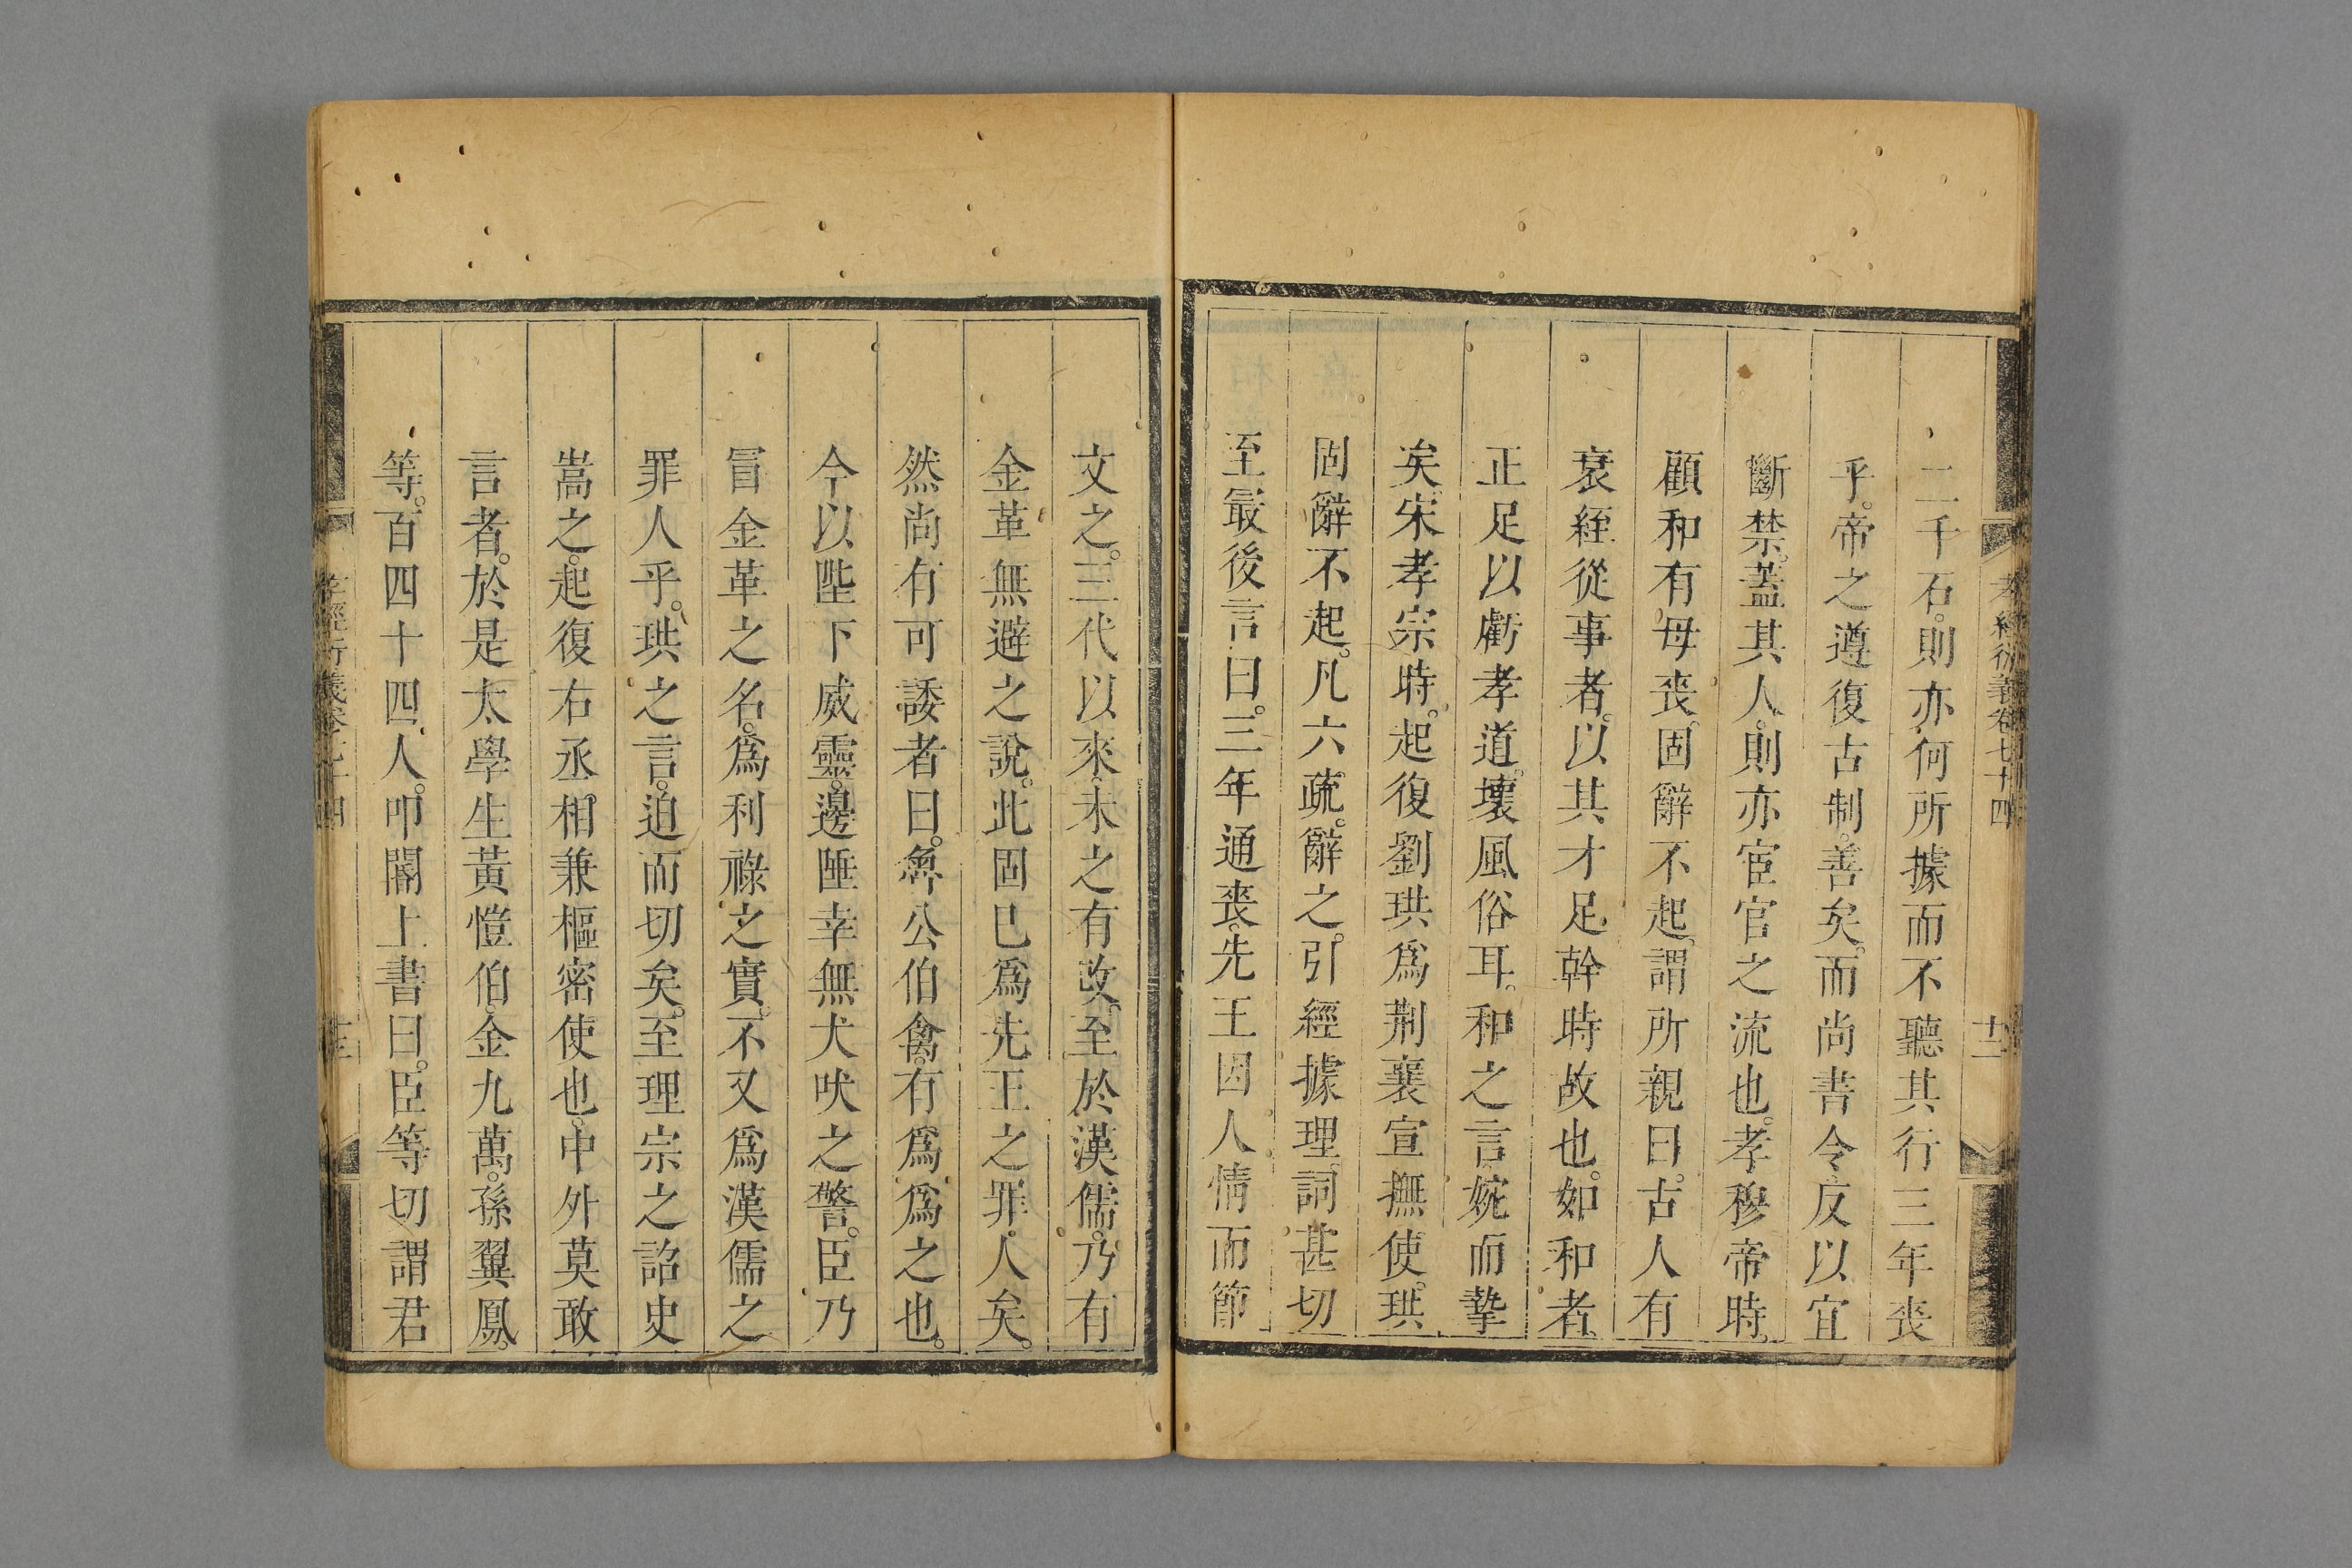 孝經衍義卷七十四
十二
二千石。則亦何所據而不聽其行三年喪
乎。帝之遵復古制。善矣。而尚書令反以宜
斷禁。蓋其人則亦宦官之流也。孝穆帝時。
顧和有母喪。固辭不起。謂所親曰。古人有
衰絰從事者。以其才足幹時故也。如和者。
正足以虧孝道。壞風俗耳。和之言婉而摯
矣。宋孝宗時。起復劉珙爲荆襄宣撫使。珙
固辭不起。凡六疏。辭之。引經據理。詞甚切
至。最後言曰。三年通喪。先王因人情而節
文之。三代以來。未之有改。至於漢儒。乃有
金革無避之說。此固已爲先王之罪人矣。
然尚有可諉者曰。魯公伯禽。有爲爲之也。
今以陛下威靈。邊陲幸無犬吠之警。臣乃
冒金革之名。爲利祿之實。不又爲漢儒之
罪人乎。珙之言。迫而切矣。至理宗之詔史
嵩之。起復右丞相兼樞密使也。中外莫敢
言者。於是太學生黃愷伯。金九萬。孫翼鳳。
等。百四十四人。叩閽上書曰。臣等切謂君
孝經衍義卷七十四
十三